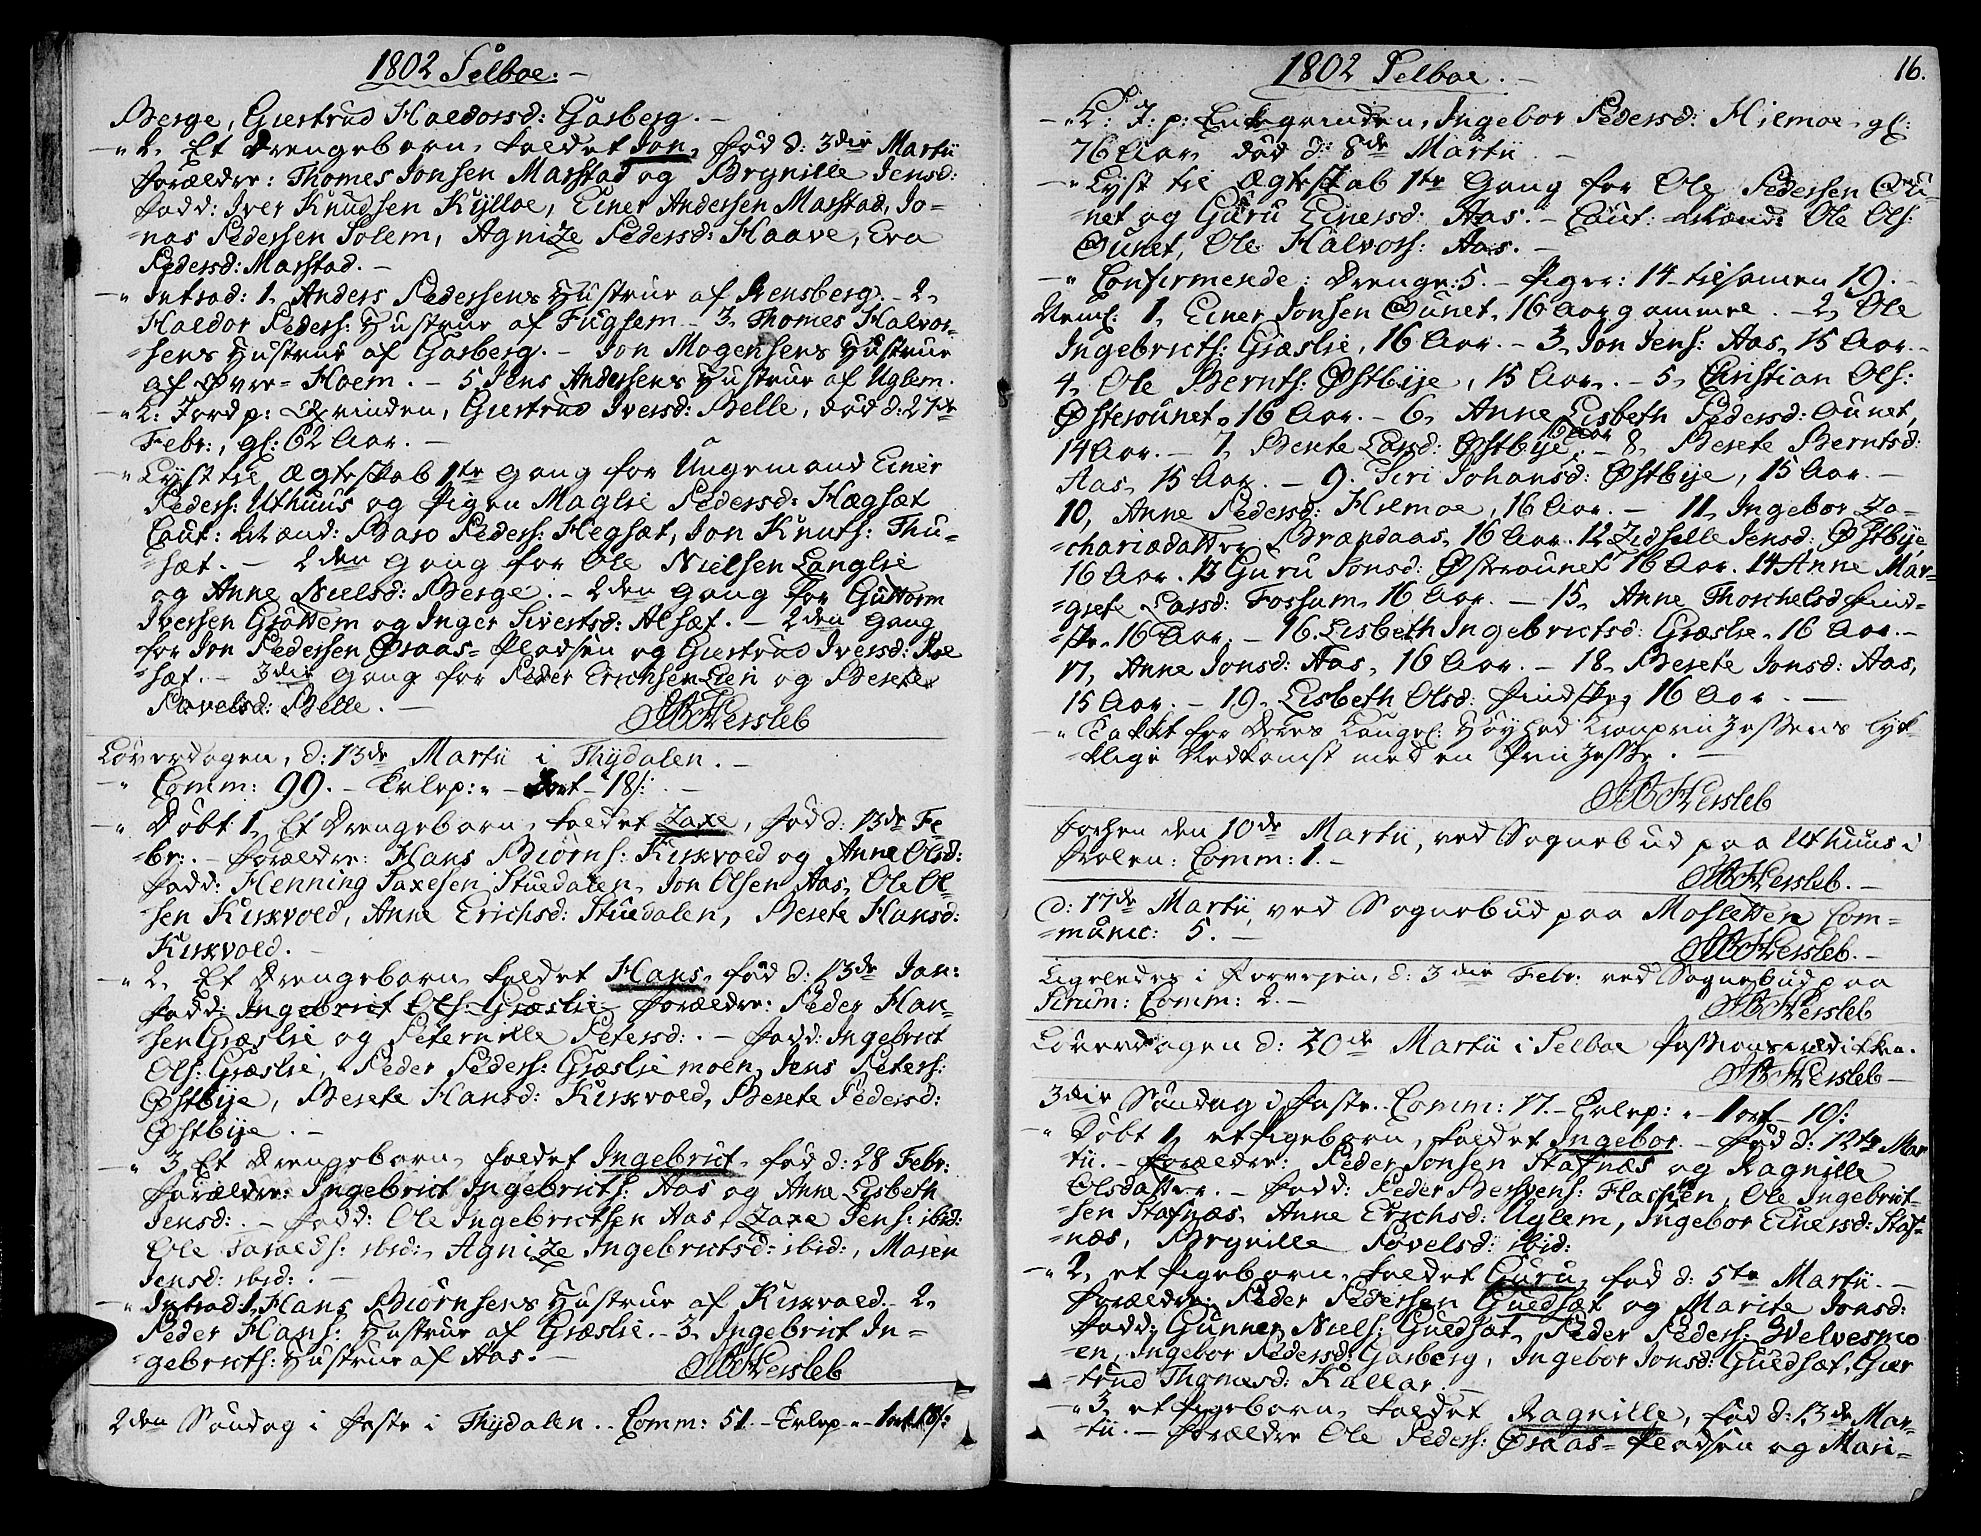 1802 Selboe. –
Berge, Giertrud Haldorsd: Garberg. –
–" 2, Et Drengebarn, kaldet Jon, fød d: 3die Martii
Forældre: Thomes Jonsen Marstad og Brynille Jensd:
Fadd: Iver Knudsen Kylloe, Einer Andersen Marstad, Jo-
-nas Pedersen Solem, Agnize Pedersd: Haave, Eva
Pedersd: Marstad. –
–" Introd: 1, Anders Pedersens Hustrue af Rensberg. – 2,
Haldor Peders: Hustrue af Fuglem – 3, Thomes Halvor-
-sens Hustrue af Garberg. – Jon Mogensens Hustrue
af Øvre- Hoem. – 5 Jens Andersens Hustrue af Uglem.
–" L: Jord p: Qvinden, Giertrud Iversd: Belle, død d: 27de
Febr:, gl: 62 Aar. –
–" Lyst til Ægteskab 1te Gang for Ungemand Einer
Peders: Uthuus og Pigen Maglie Pedersd: Hægsæt
Caut: Mænd: Baro Peders: Hegsæt, Jon Knuts: Thu-
-sæt. – 2den Gang for Ole Nielsen Langlie
og Anne Nielsd: Berge. – 2den Gang for Guttorm
Iversen Grøttem og Inger Sivertsd: Alsæt. – 2den Gang
for Jon Pedersen Øraas- Pladsen og Giertrud Iversd: Roe
-sæt. – 3die Gang for Peder Erichsen Lien og Berete
Pavelsd: Belle. –
Hersleb
Løverdagen, d: 13de Martii i Thydalen. –
–" Comm: 99. – Erlep: " – 3ort – 18ſ: –
–" Døbt 1, Et Drengebarn, kaldet Zaxe, fød d: 13de Fe-
-br: – Forældre: Hans Biørns: Kirkvold og Anne Olsd:
Fadd: Henning Saxesen Stuedalen, Jon Olsen Aas, Ole Ol-
-sen Kirkvold, Anne Erichsd: Stuedalen, Berete Hansd:
Kirkvold. –
–" 2, Et Drengebarn, kaldet Hans, fød d: 13de Jan:
Fadd: Ingebrict Ols: Græslie – Forældre: Peder Han-
-sen Græslie og Peternille Petersd: . – Fadd: Ingebrict
Ols: Græslie, Peder Peders: Græsliemoen, Jens Peters:
Østbije, Berete Hansd: Kirkvold, Berete Pedersd:
Østbije. –
–" 3, Et Drengebarn, kaldet Ingebrict, fød d: 28 Febr:
Forældre: Ingebrict Ingebricts: Aas og Anne Lisbeth
Jensd: . – Fadd: Ole Ingebrictsen Aas, Zaxe Jens: ibid:
Ole Taralds: ibid:, Agnize Ingebrictsd: ibid:, Maren
Jensd: ibid: . –
–" Introd: 1, Hans Biørnsens Hustrue af Kirkvold. – 2,
Peder Hans: Hustrue af Græslie. – 3, Ingebrict In-
-gebricts: Hustrue af Aas. –
Hersleb
2den Søndag i Faste i Thydalen. – Comm: 51. – Erlep " – 1ort 18ſ:
1802 Selboe. –
16.
–" L: J: p: Enkeqvinden, Ingebor Pedersd: Hilmoe, gl:
76 Aar, død d: 8de Martii. –
–" Lyst til Ægteskab 1te Gang for Ole Pedersen Ou-
-net og Guru Einersd: Aas. – Caut: Mænd: Ole Ols:
Ounet, Ole Halvors: Aas. –
–" Confirmerede: Drenge: 5. – Piger: 14 – tilsamen 19. –
Neml: 1, Einer Jonsen Ounet, 16 Aar gammel. – 2, Ole
Ingebricts: Græslie, 16 Aar. – 3, Jon Jens: Aas, 15 Aar. –
4, Ole Bernts: Østbije, 15 Aar. – 5, Christian Ols:
Østerounet, 16 Aar. – 6, Anne Lisbeth Pedersd: Ounet,
14 Aar. – 7, Berete Larsd: Østbije, 16 Aar – 8, Berete Berntsd:
Aas, 15 Aar. – 9. Siri Johansd: Østbije, 15 Aar. –
10, Anne Pedersd: Hilmoe, 16 Aar. – 11, Ingebor Za-
-chariædatter Brændaas, 16 Aar. 12 Zidselle Jensd: Østbije
16 Aar. 13 Guru Jonsd: Østerounet 16 Aar. 14 Anne Mar-
-grete Larsd: Fossum, 16 Aar. – 15, Anne Thorchelsd: Find-
-skr, 16 Aar. – 16. Lisbeth Ingebrictsd: Græslie, 16 Aar. –
17, Anne Jonsd: Aas, 16 Aar. – 18, Berete Jonsd: Aas,
15 Aar. – 19, Lisbeth Olsd: Findskr, 16 Aar. –
–" Takket for Deres Kongel: Høyhed Kronprinzessens lyk-
-kelige Nedkomst med en Prinzesse. –
Hersleb
Forhen den 10de Martii, ved Sognebud paa Uthuus i
Stolen: Comm: 1. –
Hersleb. –
d: 17de Martii, ved Sognebud paa Mosletten Com-
-munic: 5. –
Hersleb. –
Ligeledes i Forvejen, d: 3die Febr: ved Sognebud paa
Sirum: Comm: 2. –
Hersleb
Løverdagen d: 20de Martii i Selboe Passionsprædikken.
Hersleb –
3die Søndag i Faste. Comm: 17. – Erlep: " – 1ort – 10ſ:
–" Døbt 1, et Pigebarn, kaldet Ingebor. – fød d: 12te Mar
tii. – Forældre: Peder Jonsen Stafnæs og Ragnille
Olsdatter. – Fadd: Peder Bersvens: Flachsen, Ole Ingebrict-
-sen Stafnæs, Anne Erichsd: Uglem, Ingebor Einersd: Staf-
-næs, Brynille Povelsd: ibid:
–" 2, et Pigebarn, kaldet Guru, fød d: 5te Martii. –
Forældre: Peder Pedersen Guldsæt og Marite Jonsd:
Fadd: Gunner Niels: Guldsæt, Peder Peders: Hvelvesmo
-en, Ingebor Pedersd: Garberg, Ingebor Jonsd: Guldsæt, Gier
-trud Thomesd: Kallar. –
–" 3, et Pigebarn, kaldet Ragnille, fød d: 13de Mar-
-tii. – Forældre Ole Peders: Øraas- Pladsen og Mari-